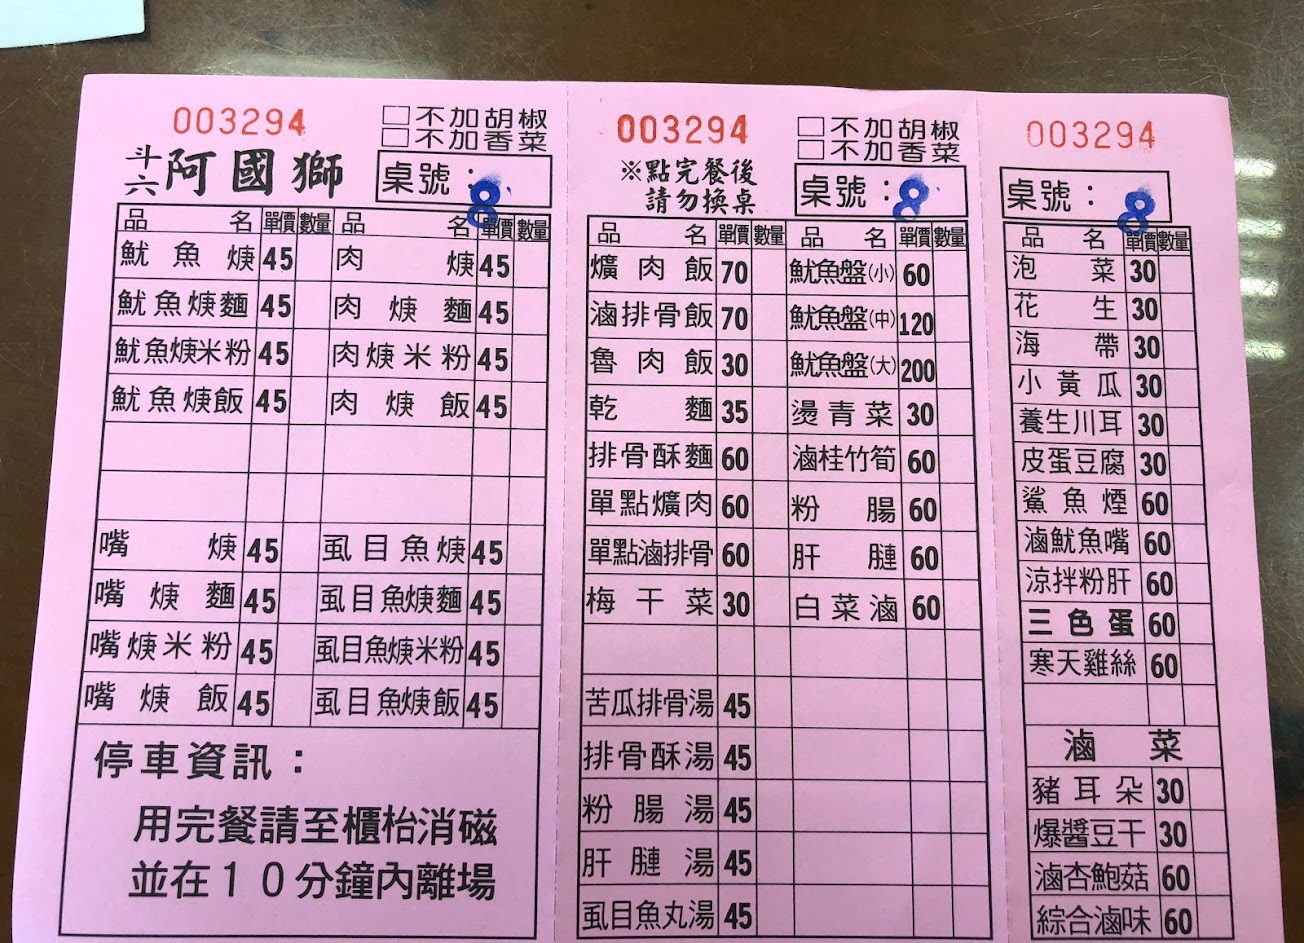 003294
□不加胡椒
□不加香菜
斗六阿國獅
桌號：8
品名 單價 數量 品名 單價 數量
魷魚焿 45 肉焿 45
魷魚焿麵 45 肉焿麵 45
魷魚焿米粉 45 肉焿米粉 45
魷魚焿飯 45 肉焿飯 45
嘴焿 45 虱目魚焿 45
嘴焿麵 45 虱目魚焿麵 45
嘴焿米粉 45 虱目魚焿米粉 45
嘴焿飯 45 虱目魚焿飯 45
停車資訊：
用完餐請至櫃枱消磁
並在１０分鐘內離場
003294
□不加胡椒
□不加香菜
※點完餐後
請勿換桌
桌號：8
品名 單價 數量 品名 單價 數量
爌肉飯 70 魷魚盤(小) 60
滷排骨飯 70 魷魚盤(中) 120
魯肉飯 30 魷魚盤(大) 200
乾麵 35 燙青菜 30
排骨酥麵 60 滷桂竹筍 60
單點爌肉 60 粉腸 60
單點滷排骨 60 肝腱 60
梅干菜 30 白菜滷 60
苦瓜排骨湯 45
排骨酥湯 45
粉腸湯 45
肝腱湯 45
虱目魚丸湯 45
003294
桌號：8
品名 單價 數量
泡菜 30
花生 30
海帶 30
小黃瓜 30
養生川耳 30
皮蛋豆腐 30
鯊魚煙 60
滷魷魚嘴 60
涼拌粉肝 60
三色蛋 60
寒天雞絲 60
滷菜
豬耳朵 30
爆醬豆干 30
滷杏鮑菇 60
綜合滷味 60